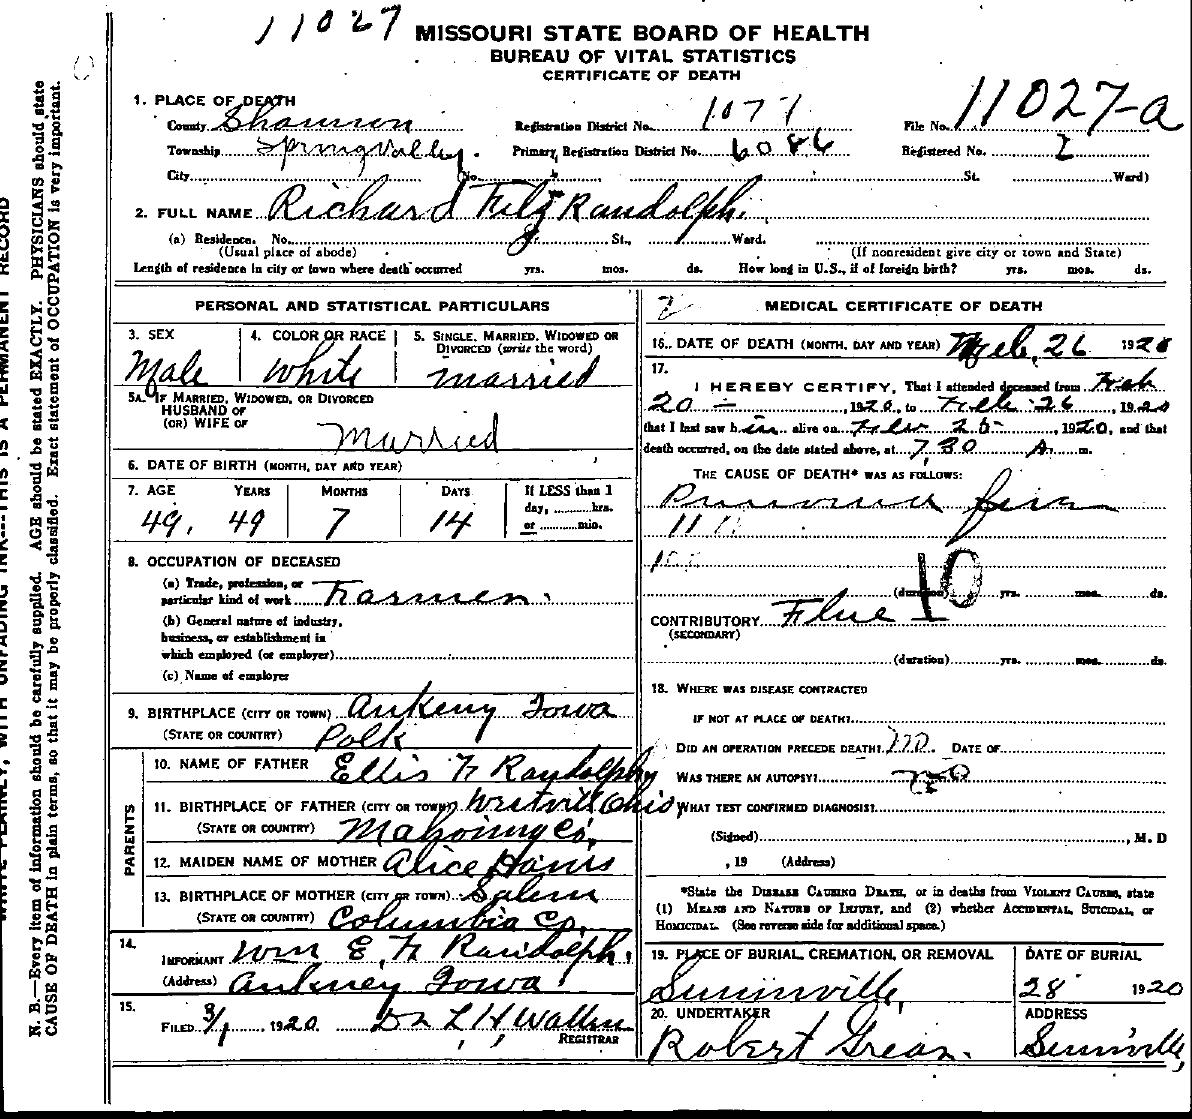 11027
MISSOURI STATE BOARD OF HEALTH
BUREAU OF VITAL STATISTICS
CERTIFICATE OF DEATH
1. PLACE OF DEATH
County Shannon Registration District No. 1077 File No. 11027-a
Township Spring Valley. Primary Registration District No. 6086 Registered No. 2
City No. St. Ward)
2. FULL NAME Richard Fitz Randolph.
(a) Residence. No. St., Ward.
(Usual place of abode) (If nonresident give city or town and State)
Length of residence in city or town where death occurred yrs. mos. ds. How long in U.S., if of foreign birth? yrs. mos. ds.
PERSONAL AND STATISTICAL PARTICULARS
3. SEX 4. COLOR OR RACE 5. SINGLE, MARRIED, WIDOWED OR DIVORCED (write the word)
Male White married
5A. IF MARRIED, WIDOWED, OR DIVORCED
HUSBAND OF
(OR) WIFE OF Married
6. DATE OF BIRTH (MONTH, DAY AND YEAR)
7. AGE YEARS MONTHS DAYS If LESS than 1
day, ....hrs.
or ....min.
49. 49 7 14
8. OCCUPATION OF DECEASED
(a) Trade, profession, or
particular kind of work Farmer.
(b) General nature of industry,
business, or establishment in
which employed (or employer)
(c) Name of employer
9. BIRTHPLACE (CITY OR TOWN) Ankeny Iowa
(STATE OR COUNTRY) Polk
PARENTS
10. NAME OF FATHER Ellis F. Randolph
11. BIRTHPLACE OF FATHER (CITY OR TOWN) Westvill Ohio,
(STATE OR COUNTRY) Mahoning Co,
12. MAIDEN NAME OF MOTHER Alice
13. BIRTHPLACE OF MOTHER (CITY OR TOWN) Salem
(STATE OR COUNTRY) Columbia Co,
14.
INFORMANT Wm E. F. Randolph.
(Address) Ankney Iowa
15.
FILED 3/1 1920 Dr L H Wallen
REGISTRAR
MEDICAL CERTIFICATE OF DEATH
16. DATE OF DEATH (MONTH, DAY AND YEAR) Feb, 26 1920
17.
I HEREBY CERTIFY, That I attended deceased from Feb
20 - , 1920, to Feb 26 , 1920
that I last saw him alive on Feb 25 - , 1920, and that
death occurred, on the date stated above, at 7,30 A. m.
THE CAUSE OF DEATH* WAS AS FOLLOWS:
10
(duration) yrs. mos. ds.
CONTRIBUTORY Flue
(SECONDARY)
(duration) yrs. mos. ds.
18. WHERE WAS DISEASE CONTRACTED
IF NOT AT PLACE OF DEATH?
DID AN OPERATION PRECEDE DEATH? no. DATE OF
WAS THERE AN AUTOPSY? no
WHAT TEST CONFIRMED DIAGNOSIS?
(Signed) , M. D
, 19 (Address)
*State the DISEASE CAUSING DEATH, or in deaths from VIOLENT CAUSES, state
(1) MEANS AND NATURE OF INJURY, and (2) whether ACCIDENTAL, SUICIDAL, or
HOMICIDAL. (See reverse side for additional space.)
19. PLACE OF BURIAL, CREMATION, OR REMOVAL DATE OF BURIAL
28 1920
20. UNDERTAKER ADDRESS
Robert
N. B.—Every item of information should be carefully supplied. AGE should be stated EXACTLY. PHYSICIANS should state
CAUSE OF DEATH in plain terms, so that it may be properly classified. Exact statement of OCCUPATION is very important.
WRITE PLAINLY, WITH UNFADING INK---THIS IS A PERMANENT RECORD